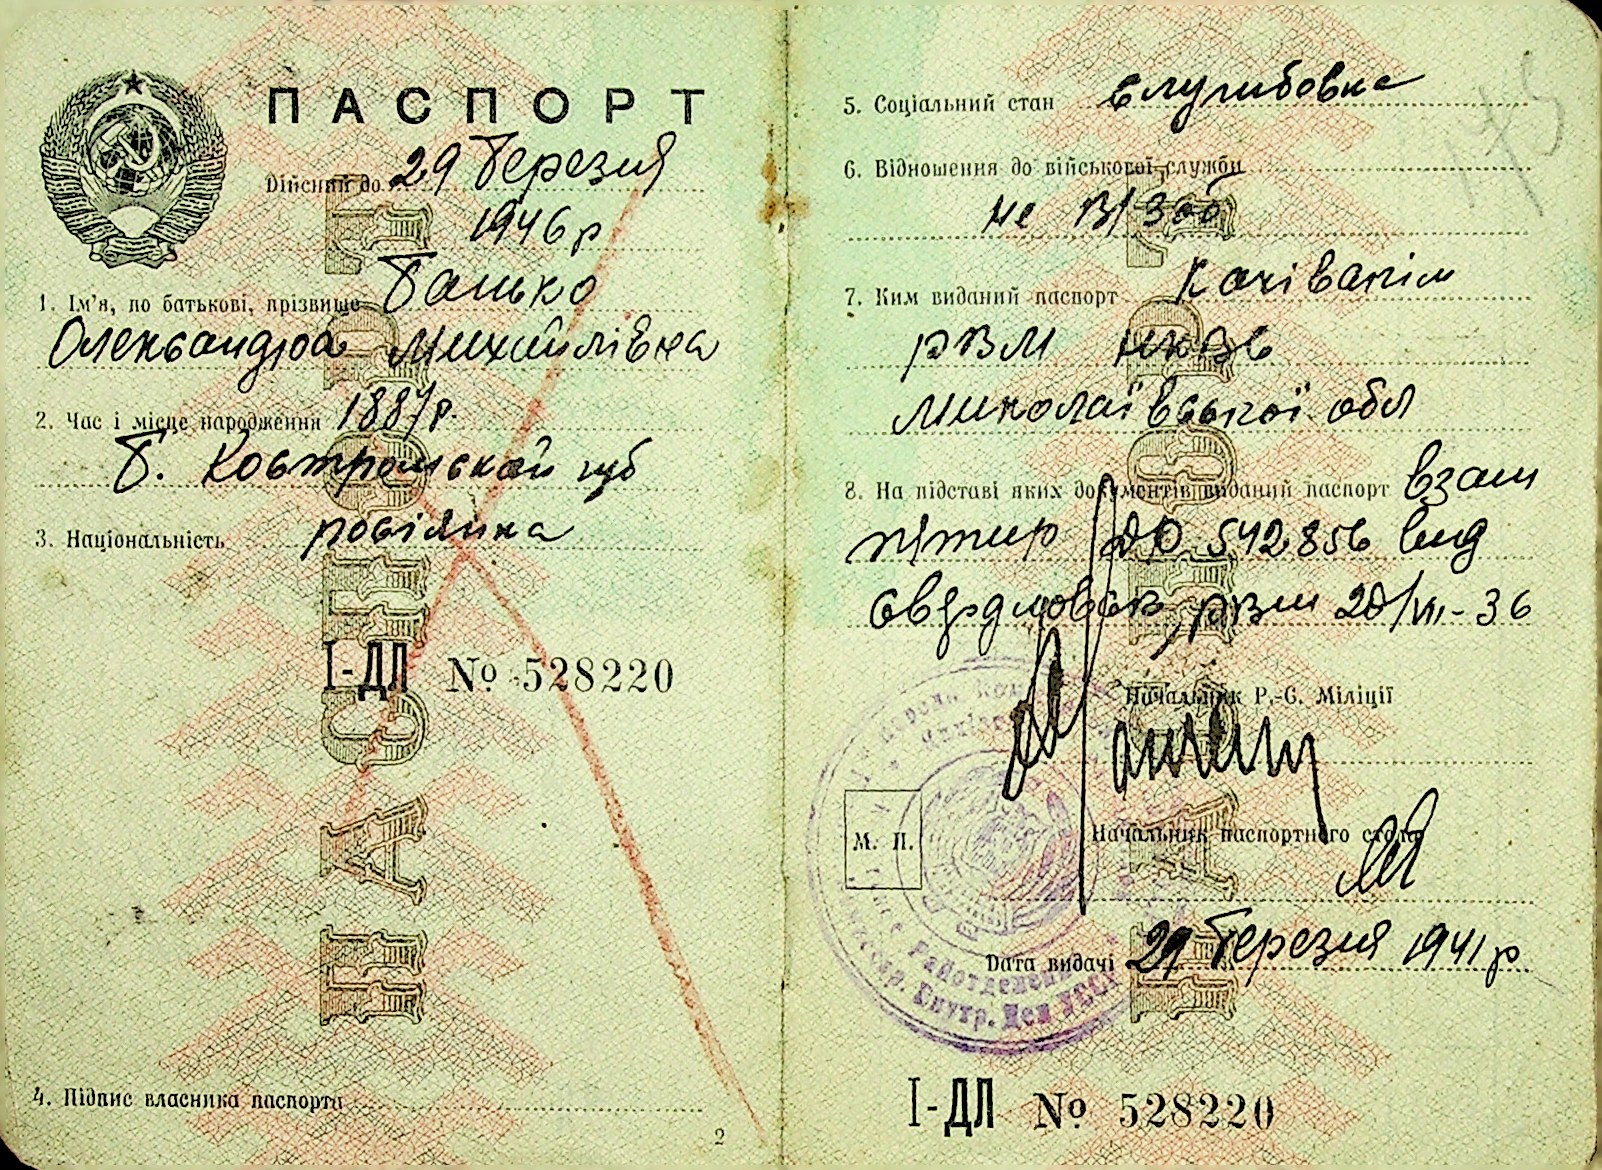 ПАСПОРТ
Дійсний до 29 березня
1946 р
1. Ім'я, по батькові, прізвище Банько
Олександра Михайлівна
2. Час і місце народження 1887 р.
б. Костромской губ
3. Національність росіянка
І-ДЛ № 528220
4. Підпис власника паспорта
2
5. Соціальний стан службовка
6. Відношення до військової служби
не в/зоб
7. Ким виданий паспорт
РВМ НКВС
Миколаївської обл
8. На підставі яких документів виданий паспорт взам
542856 вид
рвм 20/VII-36
Начальник Р.-С. Міліції
М. П.
Начальник паспортного стола
Дата видачі 29 березня 1941 р
Работ
Внутр. Дел УССР
І-ДЛ № 528220
ПАСПОРТ
ПАСПОРТ
175